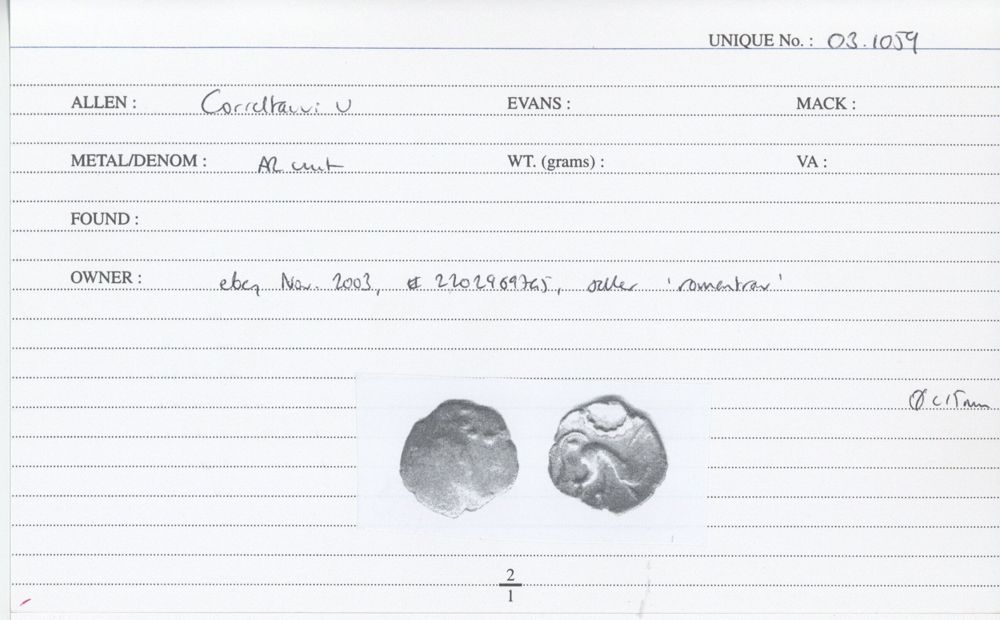 UNIQUE No. : 03.1059
ALLEN : Corieltauvi U EVANS : MACK :
METAL/DENOM : AR unit WT. (grams) : VA :
FOUND :
OWNER : ebay Nov. 2003, # 2202969765, seller 'romantrax'
Ø c15mm
2
1